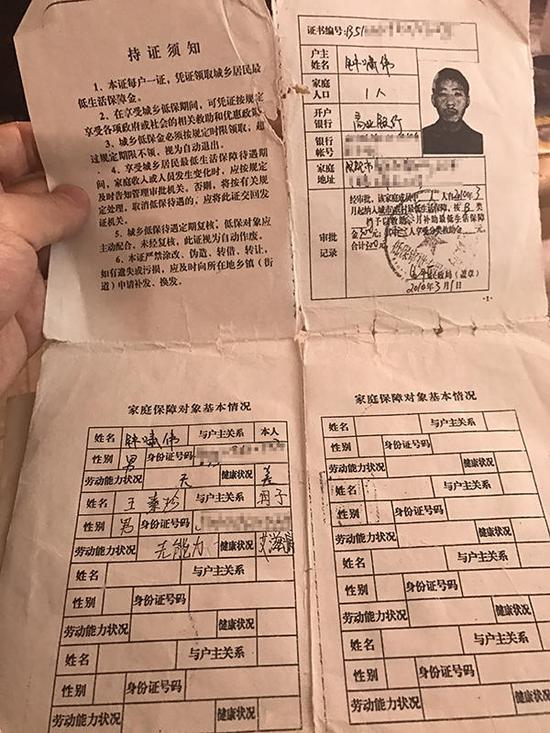 持证须知
1、本证每户一证，凭证领取城乡居民最
低生活保障金。
2、在享受城乡低保期间，可凭证按规定
享受各项政府或社会的相关救助和优惠政策。
3、城乡低保金必须按规定时限领取，超
过规定期限不领，视为自动退出。
4、享受城乡居民最低生活保障待遇期
间，家庭收入或人员发生变化时，应按规定
及时告知管理审批机关，否则，将按有关规
定处理。取消低保待遇的，应将此证交回发
证机关。
城乡低保待遇定期复核，低保对象应
主动配合。未经复核，此证视为自动作废。
6、本证严禁涂改、伪造、转借、转让，
如有遗失或污损，应及时向所在地乡镇（街
道）申请补发、换发。
证书编号：
户主
姓名
家庭
人口
1人
开户
银行
商业银行
银行
帐号
家庭
地址
审批
记录
经审批，该家庭成员中 1 人自2010年3
月起纳入城市居民最低生活保障，按 B 类
（盖章）
2010年3月1日
-1-
家庭保障对象基本情况
姓名
与户主关系
本人
性别
男
身份证号码
劳动能力状况
无
健康状况
差
姓名
王
与户主关系
性别
男
身份证号码
劳动能力状况
无能力
健康状况
姓名
与户主关系
性别
身份证号码
劳动能力状况
健康状况
姓名
与户主关系
性别
身份证号码
劳动能力状况
健康状况
家庭保障对象基本情况
姓名
与户主关系
性别
身份证号码
劳动能力状况
健康状况
姓名
与户主关系
性别
身份证号码
劳动能力状况
健康状况
姓名
与户主关系
性别
身份证号码
劳动能力状况
健康状况
姓名
与户主关系
性别
身份证号码
劳动能力状况
健康状况